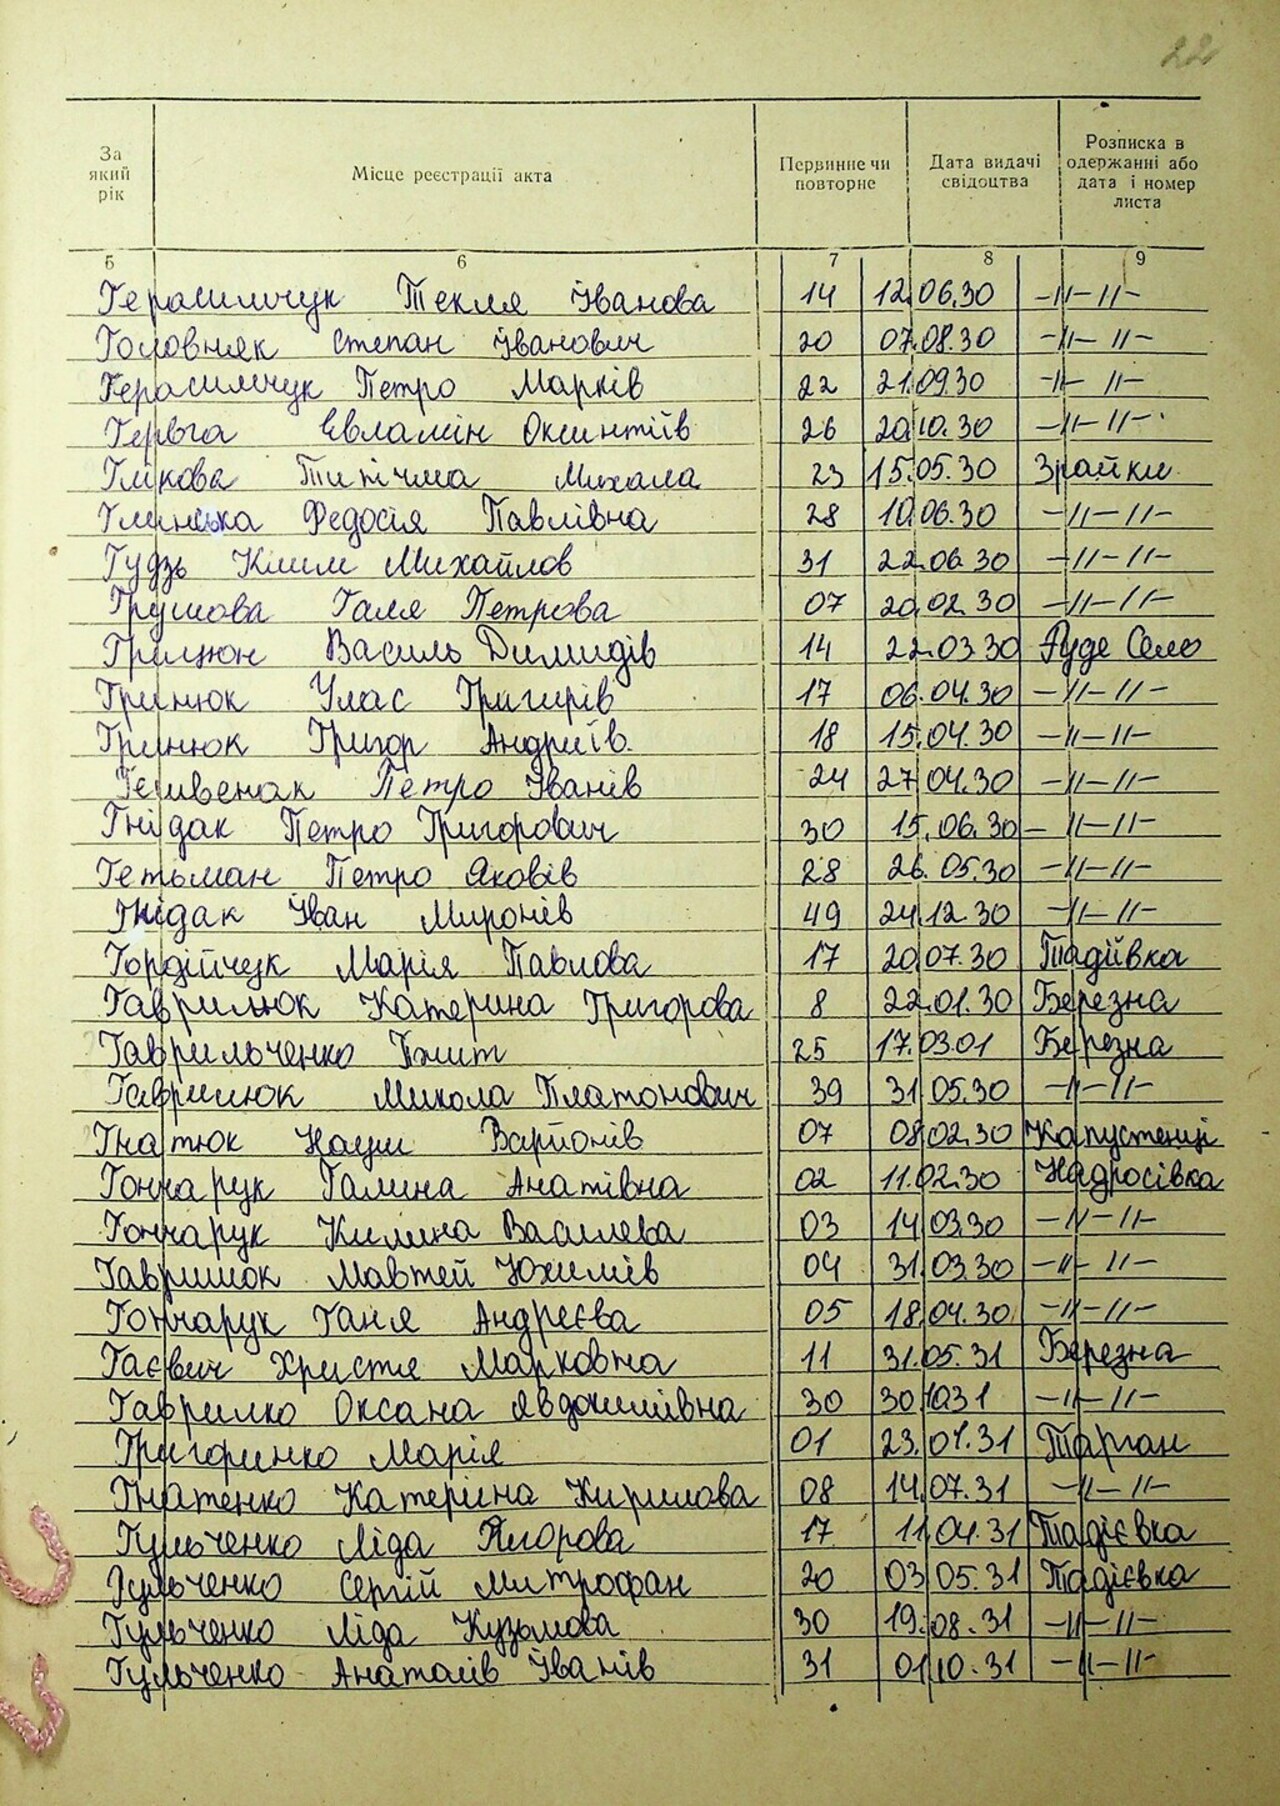 22
За який рік Місце реєстрації акта Первинне чи повторне Дата видачі свідоцтва Розписка в одержанні або дата і номер листа
5 6 7 8 9
Герасимчук Текля Іванова 14 12.06.30 -//-//-
Головняк Степан Іванович 20 07.08.30 -//-//-
Герасимчук Петро Марків 22 21.09.30 -//-//-
Герега Евламін Оксинтіїв 26 20.10.30 -//-//-
Михала 23 15.05.30 Зрайки
Глинська Федосія Павлівна 28 10.06.30 -//-//-
Гудзь Клим Михайлов 31 22.06.30 -//-//-
Грушова Галя Петрова 07 20.02.30 -//-//-
Василь Димидів 14 22.03.30 Руде Село
Гринюк Улас Григирів 17 06.04.30 -//-//-
Гринюк Григор Андриїв. 18 15.04.30 -//-//-
Петро Іванів 24 27.04.30 -//-//-
Гнідак Петро Григорович 30 15.06.30 -//-//-
Гетьман Петро Яковів 28 26.05.30 -//-//-
Гнідак Іван Миронів 49 24.12.30 -//-//-
Гордійчук Марія Павлова 17 20.07.30 Тадіївка
Гаврилюк Катерина Григорова 8 22.01.30 Березна
Гаврильченко 25 17.03.01 Березна
Гаврилюк Микола Платонович 39 31.05.30 -//-//-
Гнатюк Варионів 07 08.02.30 Капустенці
Гончарук Галина Анатівна 02 11.02.30 Надросівка
Гончарук Килина Василева 03 14.03.30 -//-//-
Гаврилюк Мавтей Юхимів 04 31.03.30 -//-//-
Гончарук Ганя Андреєва 05 18.04.30 -//-//-
Гаєвич Христя Марковна 11 31.05.31 Березна
Гаврилко Оксана Явдокимівна 30 30.10.31 -//-//-
Григоринко Марія 01 23.01.31 Тарган
Гнатенко Катерина Кирилова 08 14.07.31 -//-//-
Гульченко Ліда Ягорова 17 11.04.31 Тадієвка
Гульченко Сергій Митрофан 20 03.05.31 Тадієвка
Гульченко Ліда Кузьмова 30 19.08.31 -//-//-
Гульченко Анатолів Іванів 31 01.10.31 -//-//-